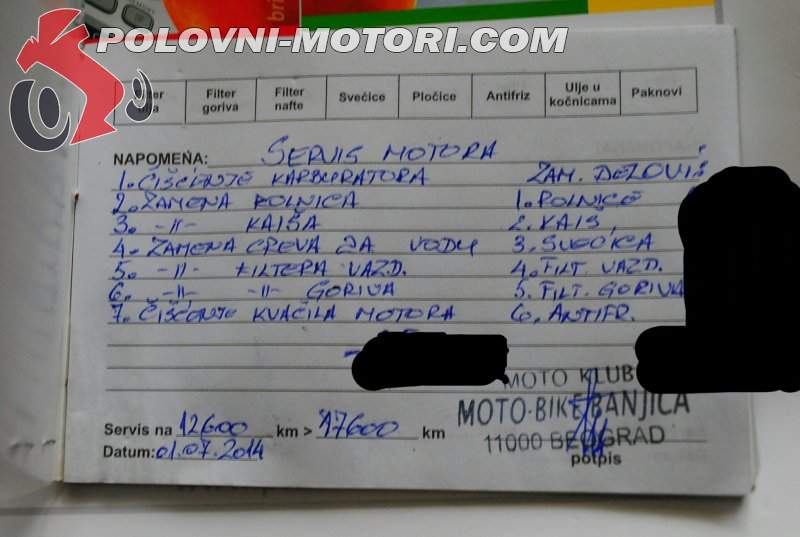 POLOVNI-MOTORI.COM
Filter goriva
Filter nafte
Svečice
Pločice
Antifriz
Ulje u kočnicama
Paknovi
NAPOMENA: SERVIS MOTORA
1. ČIŠĆENJE KARBURATORA ZAM. DELOVI
2. ZAMENA ROLNICA 1. ROLNICE
3. -II- KAIŠA 2. KAIŠ
4. ZAMENA CREVA ZA VODU 3. SVEĆICA
5. -II- FILTERA VAZD. 4. FILT. VAZD.
6. -II- -II- GORIVA 5. FILT. GORIVA
7. ČIŠĆENJE KVAČILA MOTORA 6. ANTIFR.
MOTO KLUB
MOTO-BIKE BANJICA
Servis na 12600 km > 17600 km
11000 BEOGRAD
Datum: 01.07.2014
potpis